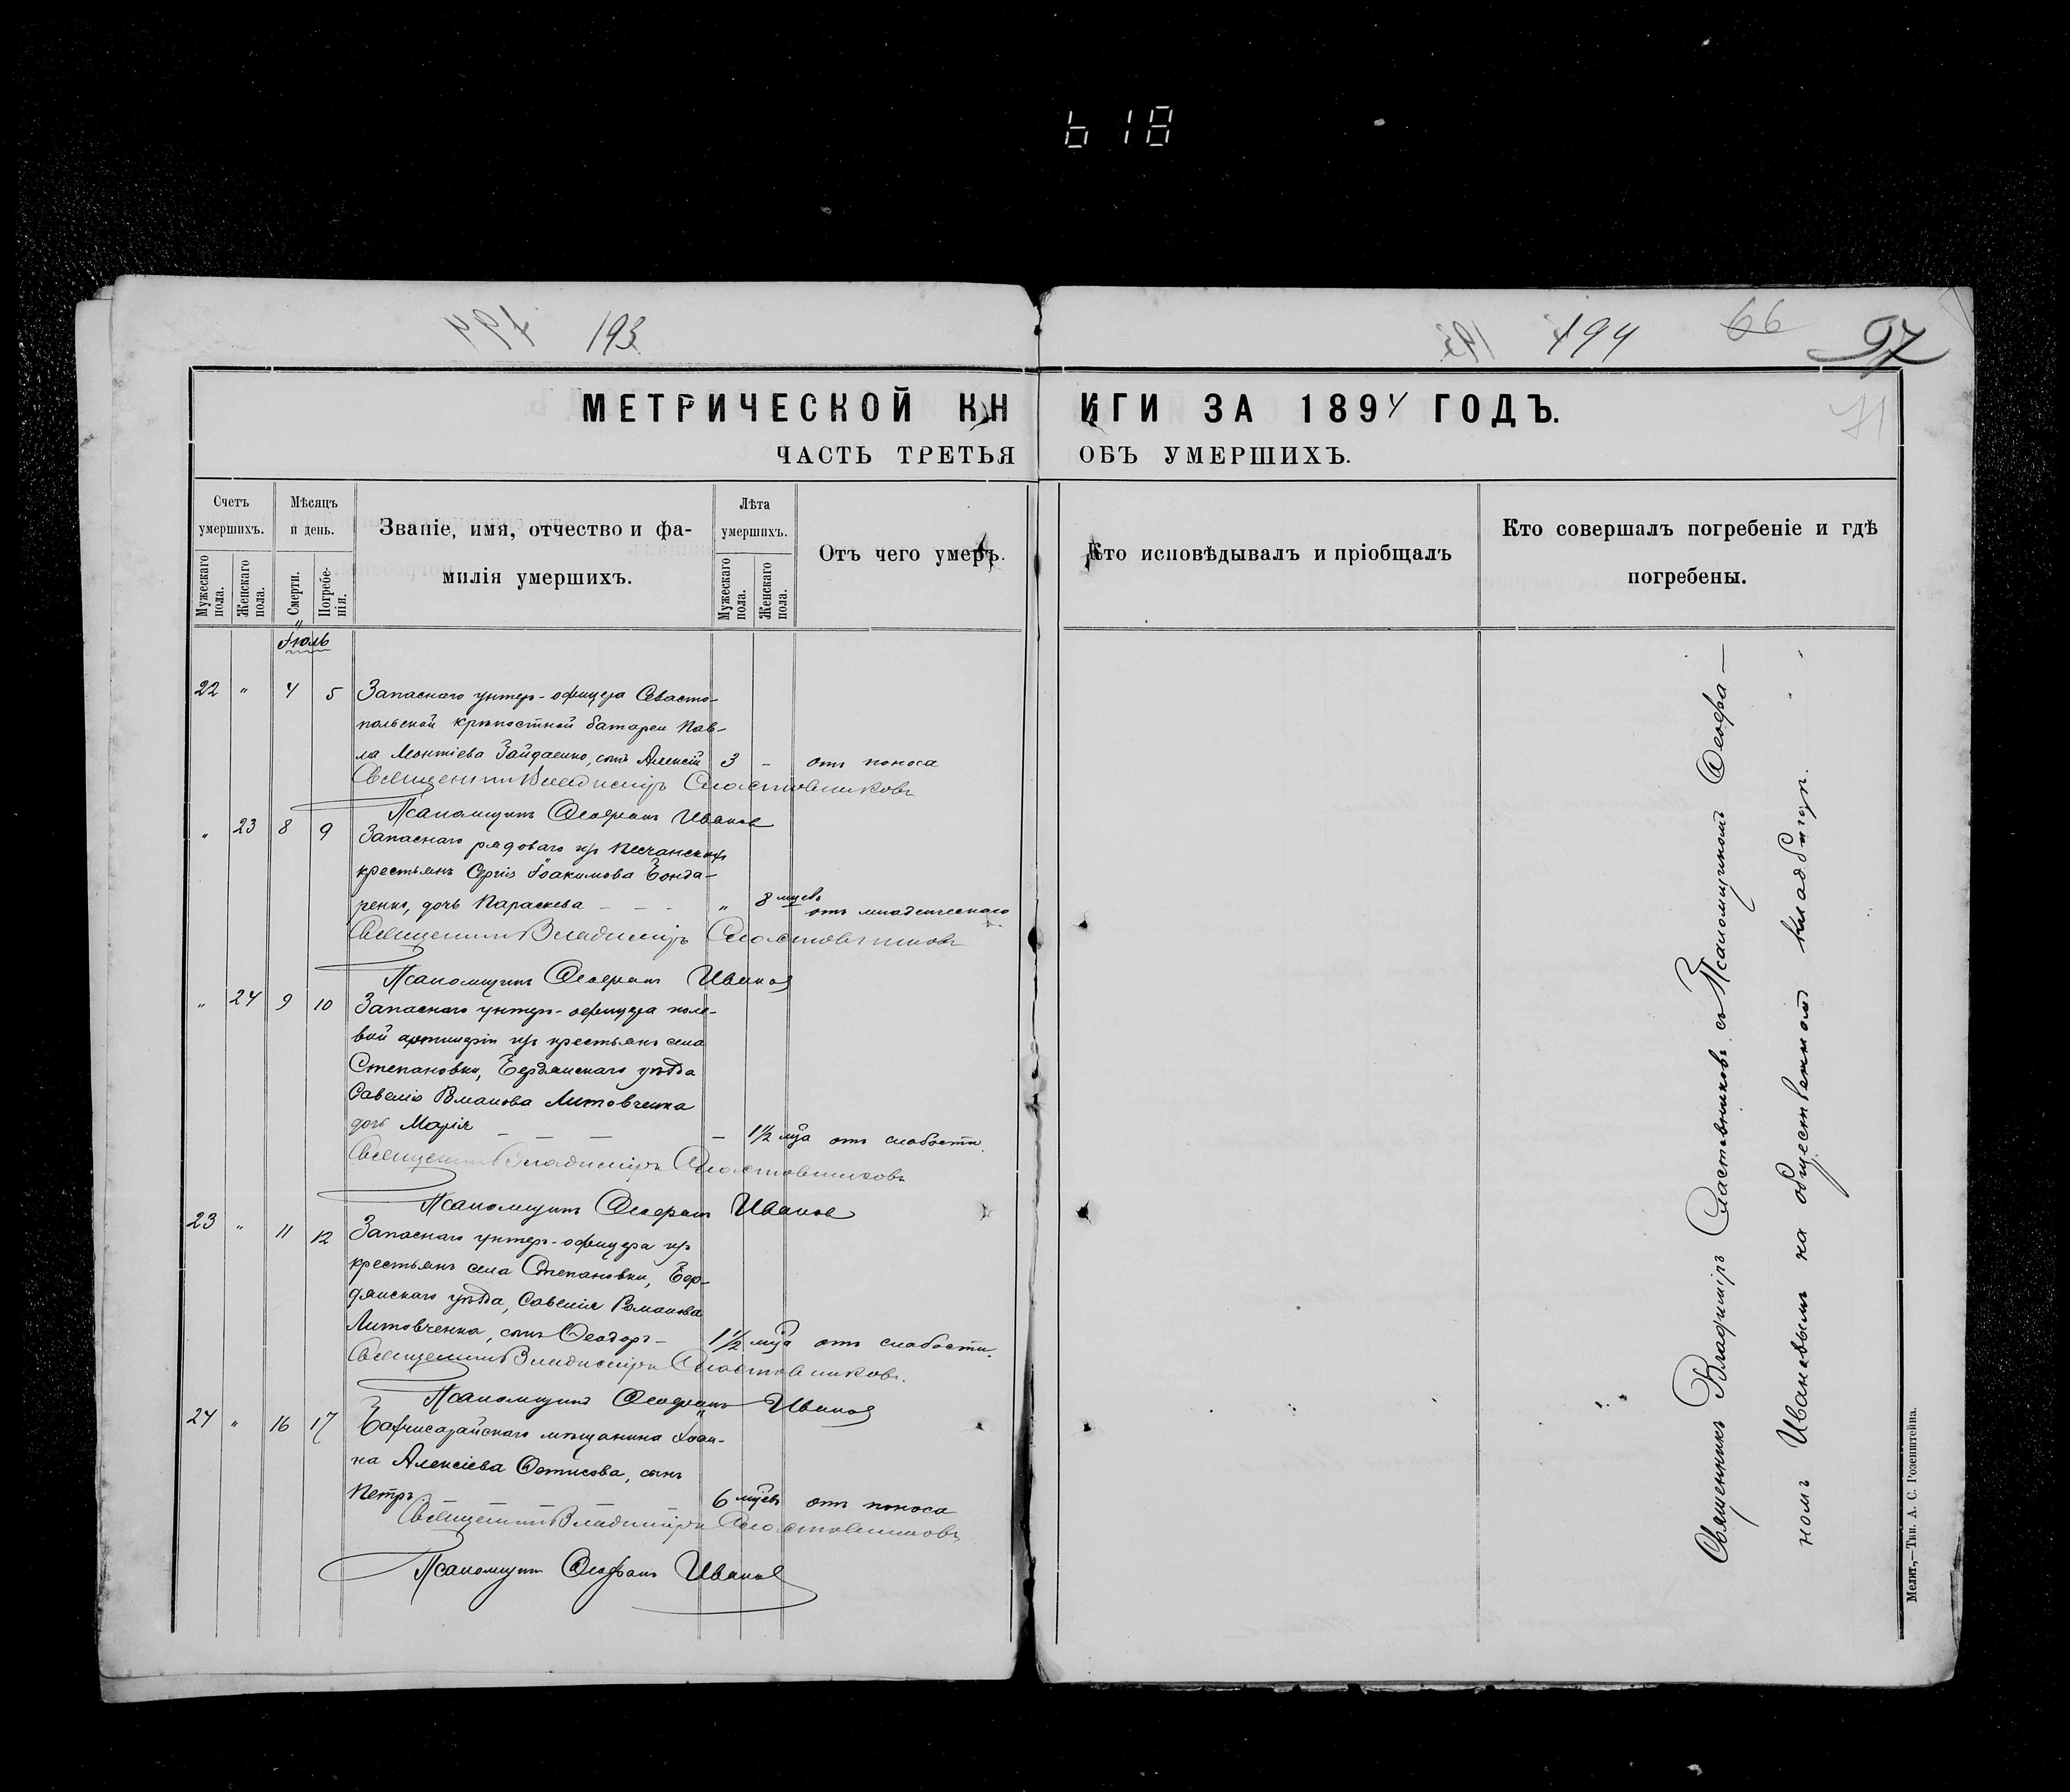 618
193
194
66
97
71
МЕТРИЧЕСКОЙ КНИГИ ЗА 1894 ГОДЪ.
ЧАСТЬ ТРЕТЬЯ ОБЪ УМЕРШИХЪ.
Счетъ умершихъ.
Мужескаго пола.
Женскаго пола.
Мѣсяцъ и день.
Смерти.
Погребенія.
Званіе, имя, отчество и фамилія умершихъ.
Лѣта умершихъ.
Мужескаго пола.
Женскаго пола.
Отъ чего умеръ.
Кто исповѣдывалъ и пріобщалъ
Кто совершалъ погребеніе и гдѣ погребены.
Іюль
22 " 4 5 Запаснаго унтеръ-офицера Севасто-
польской крѣпостной батареи Пав-
ла Леонтіева Гайдаенко, сынъ Алексій 3 - отъ поноса
Священникъ Владиміръ Сластовниковъ
Псаломщикъ Ѳеофанъ Ивановъ
" 23 8 9 Запаснаго рядоваго изъ Песчанскихъ
крестьянъ Сергія Іоакимова Бонда-
ренко, дочь Параскева - - - " 8 мцевъ отъ младенческаго
Священникъ Владиміръ Сластовниковъ
Псаломщикъ Ѳеофанъ Ивановъ
" 24 9 10 Запаснаго унтеръ-офицера поле-
вой артилеріи изъ крестьянъ села
Степановки, Бердянскаго уѣзда
Савелія Романова Литовченка
дочь Марія - - - - 1½ мца отъ слабости.
Священникъ Владиміръ Сластовниковъ
Псаломщикъ Ѳеофанъ Ивановъ
23 " 11 12 Запаснаго унтеръ-офицера изъ
крестьянъ села Степановки, Бер-
дянскаго уѣзда, Савелія Романова
Литовченка, сынъ Ѳеодоръ - 1½ мца отъ слабости.
Священникъ Владиміръ Сластовниковъ.
Псаломщикъ Ѳеофанъ Ивановъ
24 " 16 17 Бахчисарайскаго мѣщанина Іоан-
на Алексіева Ѳетисова, сынъ
Петръ. - - - - 6 мцевъ отъ поноса
Священникъ Владиміръ Сластовниковъ
Псаломщикъ Ѳеофанъ Ивановъ
Священникъ Владиміръ Сластовниковъ съ Псаломщикомъ Ѳеофа-
номъ Ивановымъ на общественномъ кладбищѣ.
Мелит.—Тип. А. С. Розенштейна.